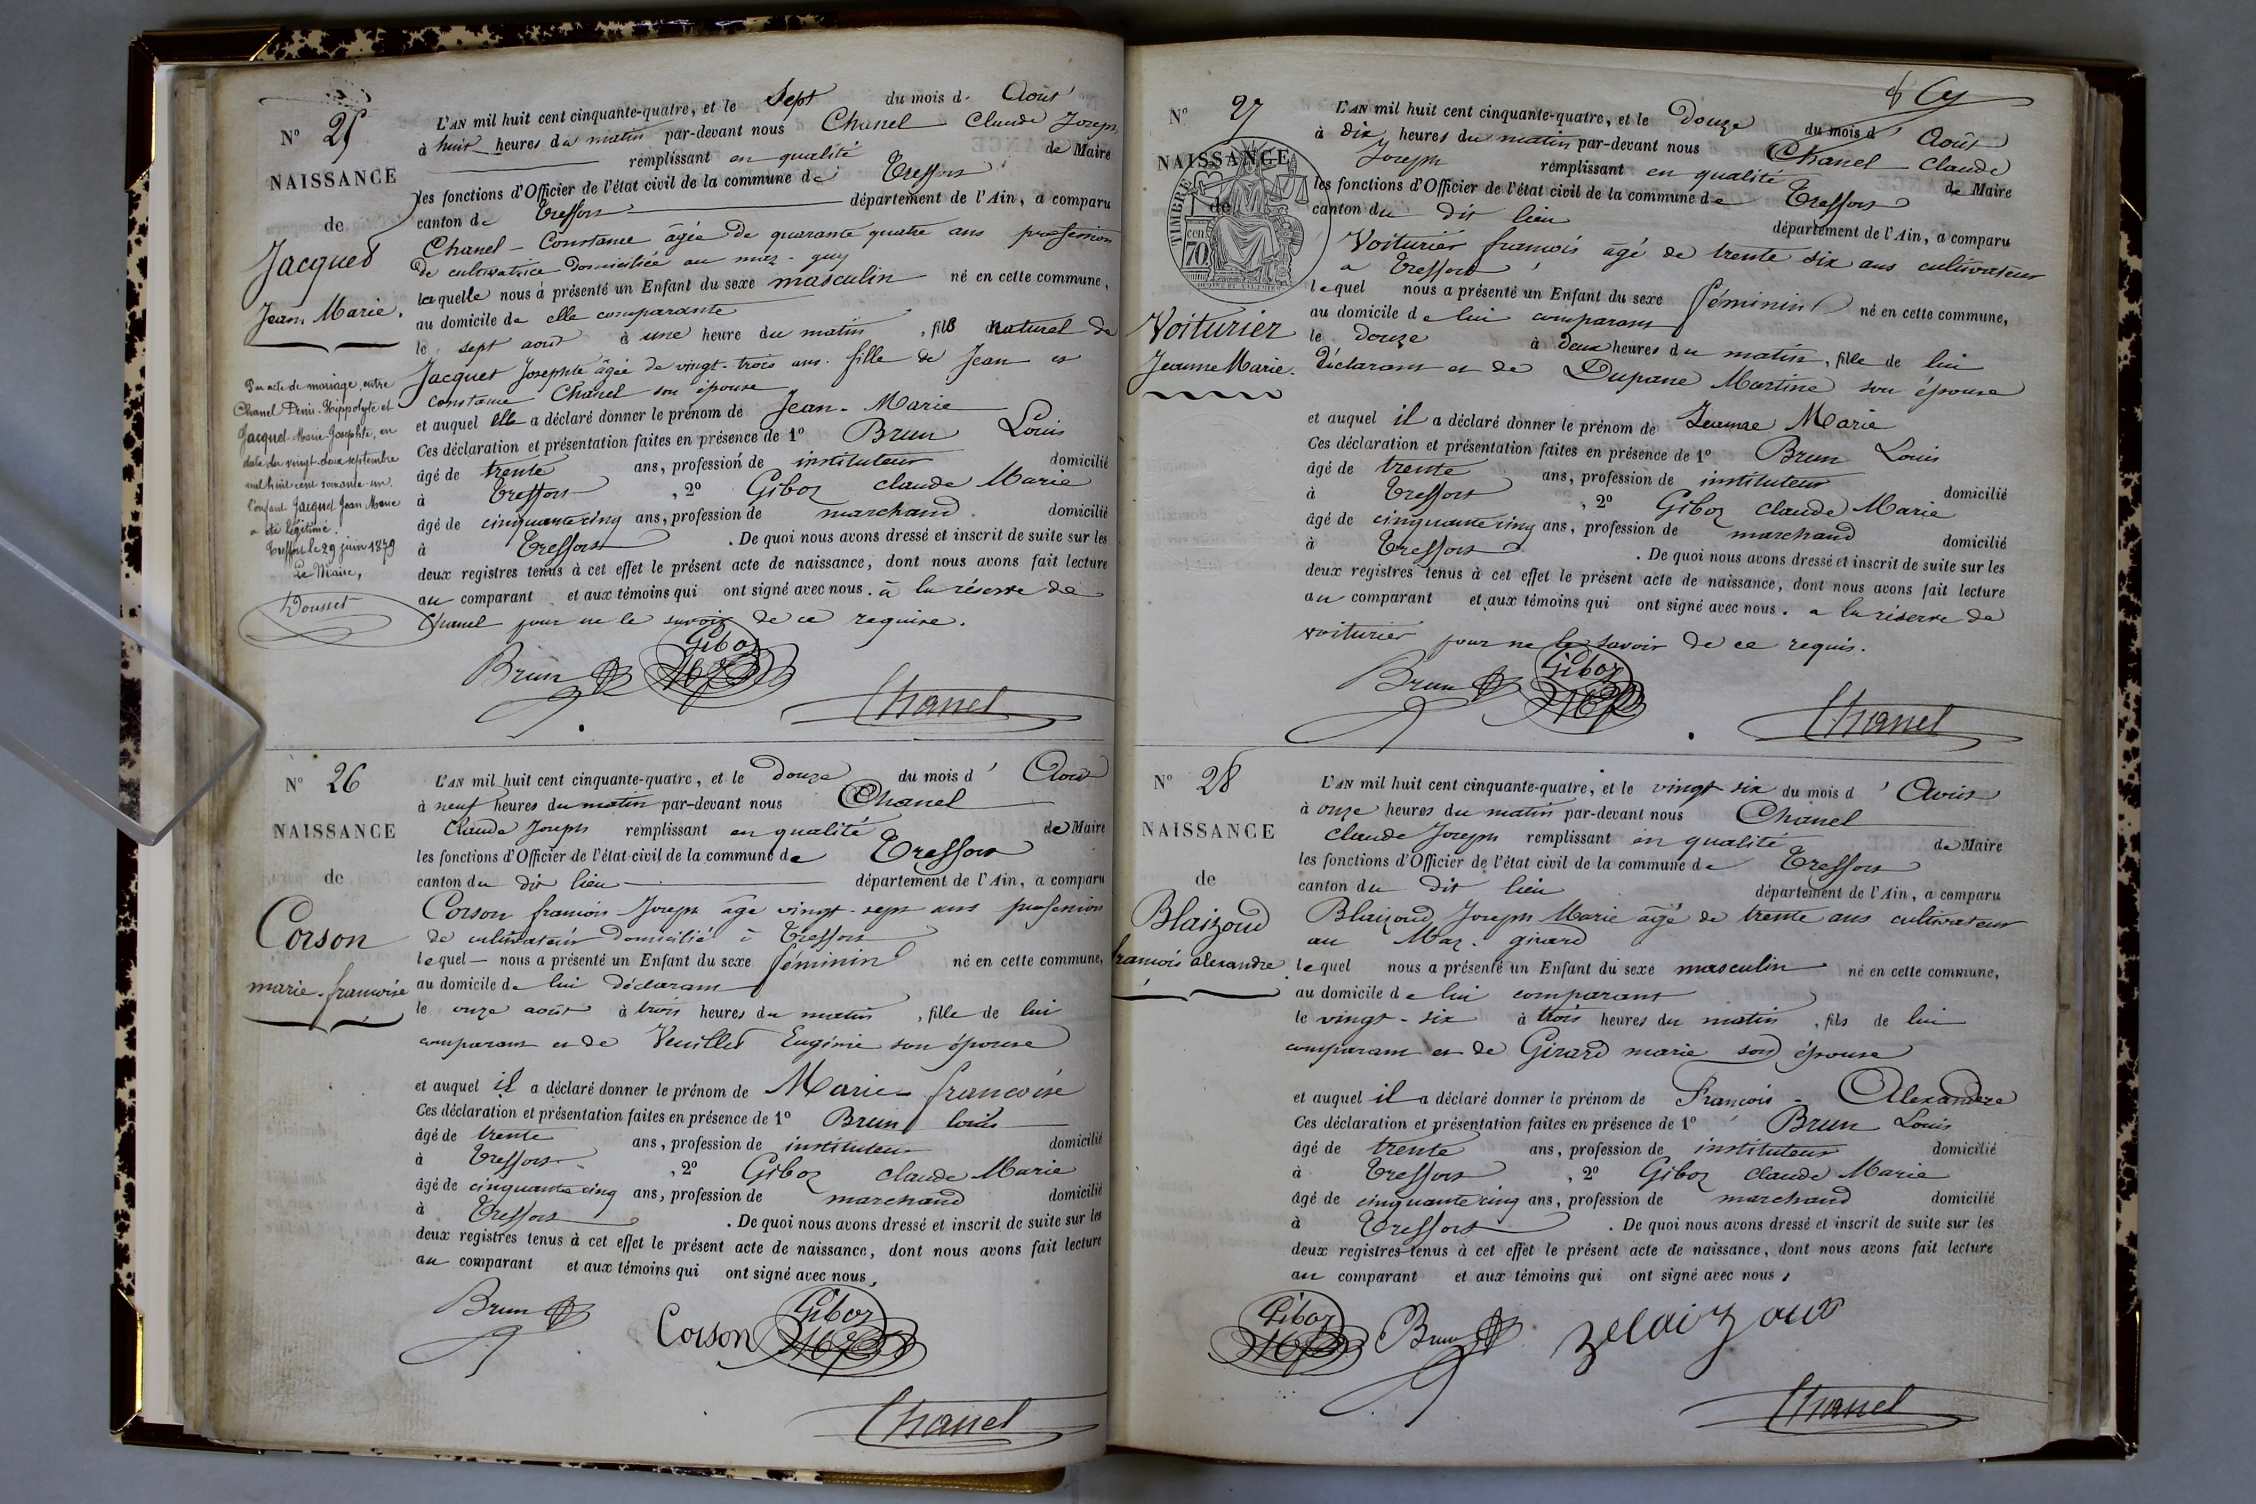 N° 25
NAISSANCE
de
Jacquet
Jean Marie.
Par acte de mariage, entre
Chanel Denis-Hippolyte et
Jacquet Marie-Josephte, en
date du vingt-deux septembre
mil huit cent soixante-un
l'enfant Jacquet Jean Marie
a été légitimé.
Treffort le 29 juin 1879
Le Maire,
Dousset
L'AN mil huit cent cinquante-quatre, et le Sept du mois d' Août
à huit heures du matin par-devant nous Chanel Claude Joseph
remplissant en qualité de Maire
les fonctions d'Officier de l'état civil de la commune de Treffort
canton de Treffort département de l'Ain, a comparu
Chanel Constance âgée de quarante quatre ans profession
de cultivatrice domiciliée au
laquelle nous a présenté un Enfant du sexe masculin né en cette commune,
au domicile de elle comparante
le sept août à une heure du matin, fils naturel de
Jacquet Josephte âgée de vingt-trois ans fille de Jean et
constance Chanel son épouse
et auquel elle a déclaré donner le prénom de Jean-Marie
Ces déclaration et présentation faites en présence de 1° Brun Louis
âgé de trente ans, profession de instituteur domicilié
à Treffort, 2° Giboz claude Marie
âgé de cinquante cinq ans, profession de marchand domicilié
à Treffort. De quoi nous avons dressé et inscrit de suite sur les
deux registres tenus à cet effet le présent acte de naissance, dont nous avons fait lecture
au comparant et aux témoins qui ont signé avec nous. à la réserve de
Chanel pour ne le savoir de ce requise.
Brun Giboz
Chanel
N° 26
NAISSANCE
de
Corson
marie-francoise
L'AN mil huit cent cinquante-quatre, et le Douze du mois d' Août
à neuf heures du matin par-devant nous Chanel
Claude Joseph remplissant en qualité de Maire
les fonctions d'Officier de l'état civil de la commune de Treffort
canton du dit lieu département de l'Ain, a comparu
Corson francois Joseph âgé vingt-sept ans profession
de cultivateur domicilié à Treffort
lequel nous a présenté un Enfant du sexe féminin né en cette commune,
au domicile de lui déclarant
le onze août à trois heures du matin, fille de lui
comparant et de Veuillet Eugénie son épouse
et auquel il a déclaré donner le prénom de Marie-francoise
Ces déclaration et présentation faites en présence de 1° Brun louis
âgé de trente ans, profession de instituteur domicilié
à Treffort, 2° Giboz claude Marie
âgé de cinquante cinq ans, profession de marchand domicilié
à Treffort. De quoi nous avons dressé et inscrit de suite sur les
deux registres tenus à cet effet le présent acte de naissance, dont nous avons fait lecture
au comparant et aux témoins qui ont signé avec nous,
Brun Corson Giboz
Chanel
N° 27
NAISSANCE
de
TIMBRE
70 cen
Voiturier
Jeanne Marie.
L'AN mil huit cent cinquante-quatre, et le Douze du mois d' Août
à dix heures du matin par-devant nous Chanel Claude
Joseph remplissant en qualité de Maire
les fonctions d'Officier de l'état civil de la commune de Treffort
canton du dit lieu département de l'Ain, a comparu
Voiturier francois âgé de trente six ans cultivateur
a Treffort
lequel nous a présenté un Enfant du sexe féminin né en cette commune,
au domicile de lui comparant
le douze à deux heures du matin, fille de lui
déclarant et de Dupane Martine son épouse
et auquel il a déclaré donner le prénom de Jeanne Marie
Ces déclaration et présentation faites en présence de 1° Brun Louis
âgé de trente ans, profession de instituteur domicilié
à Treffort, 2° Giboz claude Marie
âgé de cinquante cinq ans, profession de marchand domicilié
à Treffort. De quoi nous avons dressé et inscrit de suite sur les
deux registres tenus à cet effet le présent acte de naissance, dont nous avons fait lecture
au comparant et aux témoins qui ont signé avec nous. a la réserve de
voiturier pour ne le savoir de ce requis.
Brun Giboz
Chanel
N° 28
NAISSANCE
de
Blaizoud
francois alexandre
L'AN mil huit cent cinquante-quatre, et le vingt-six du mois d' Août
à onze heures du matin par-devant nous Chanel
claude Joseph remplissant en qualité de Maire
les fonctions d'Officier de l'état civil de la commune de Treffort
canton du dit lieu département de l'Ain, a comparu
Blaizoud Joseph Marie âgé de trente ans cultivateur
au Maz. girard
lequel nous a présenté un Enfant du sexe masculin né en cette commune,
au domicile de lui comparant
le vingt-six à trois heures du matin, fils de lui
comparant et de Girard marie son épouse
et auquel il a déclaré donner le prénom de Francois-Alexandre
Ces déclaration et présentation faites en présence de 1° Brun Louis
âgé de trente ans, profession de instituteur domicilié
à Treffort, 2° Giboz claude Marie
âgé de cinquante cinq ans, profession de marchand domicilié
à Treffort. De quoi nous avons dressé et inscrit de suite sur les
deux registres tenus à cet effet le présent acte de naissance, dont nous avons fait lecture
au comparant et aux témoins qui ont signé avec nous,
Giboz Brun
Chanel